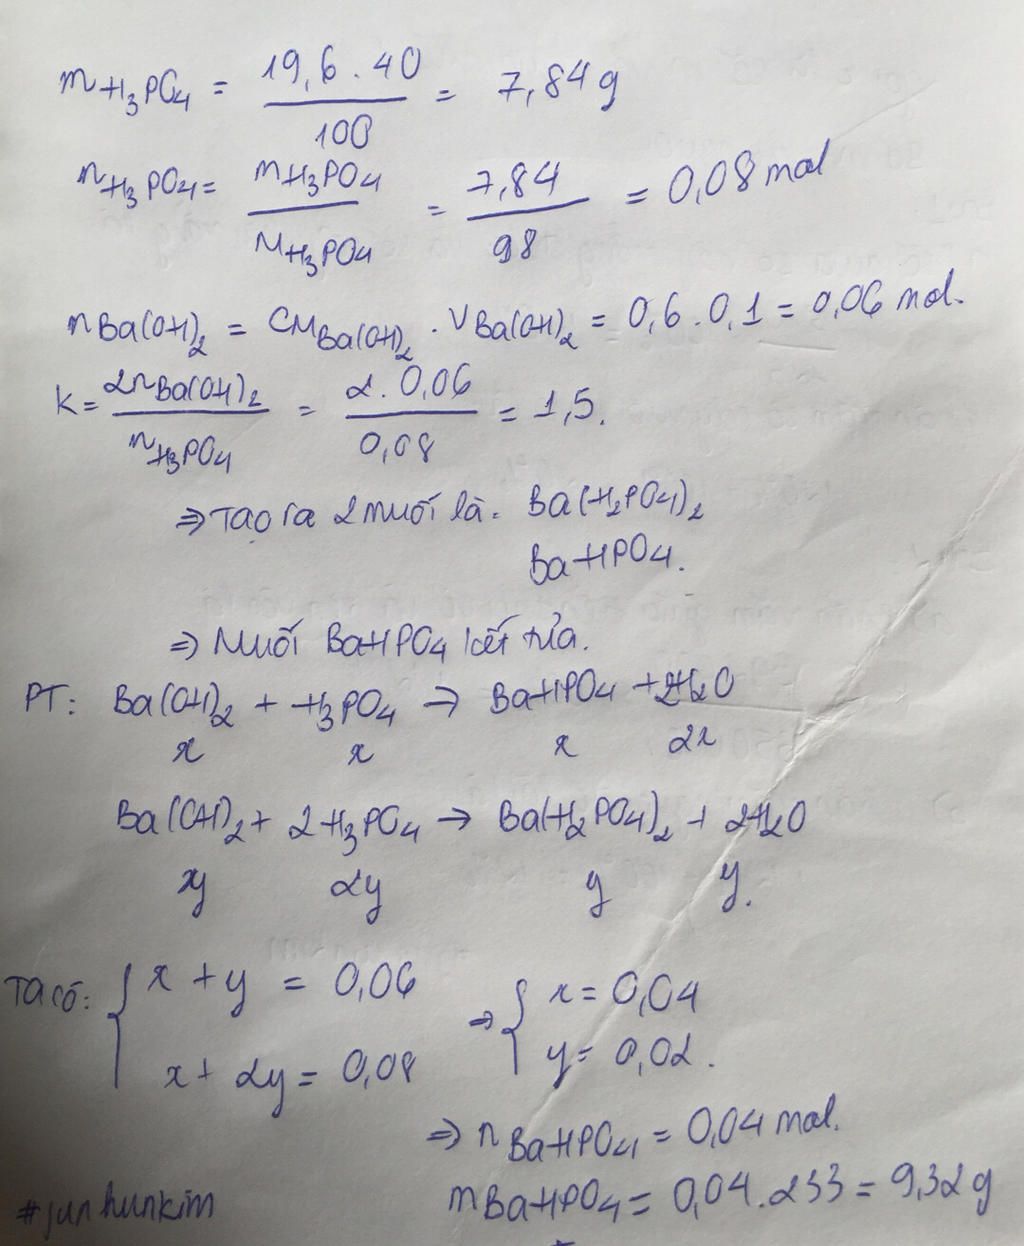 mH₃PO₄ = 19,6 . 40 / 100 = 7,84 g
nH₃PO₄ = mH₃PO₄ / MH₃PO₄ = 7,84 / 98 = 0,08 mol
nBa(OH)₂ = CMBa(OH)₂ . VBa(OH)₂ = 0,6 . 0,1 = 0,06 mol.
K = 2nBa(OH)₂ / nH₃PO₄ = 2. 0,06 / 0,08 = 1,5.
⇒ Tạo ra 2 muối là: Ba(H₂PO₄)₂
BaHPO₄.
⇒ Muối BaHPO₄ kết tủa.
PT: Ba(OH)₂ + H₃PO₄ → BaHPO₄ + 2H₂O
x x x 2x
Ba(OH)₂ + 2H₃PO₄ → Ba(H₂PO₄)₂ + 2H₂O
y 2y y y.
Ta có: { x + y = 0,06 ⇒ { x = 0,04
x + 2y = 0,08 y = 0,02.
⇒ nBaHPO₄ = 0,04 mol.
mBaHPO₄ = 0,04 . 233 = 9,32 g
#junhunkim